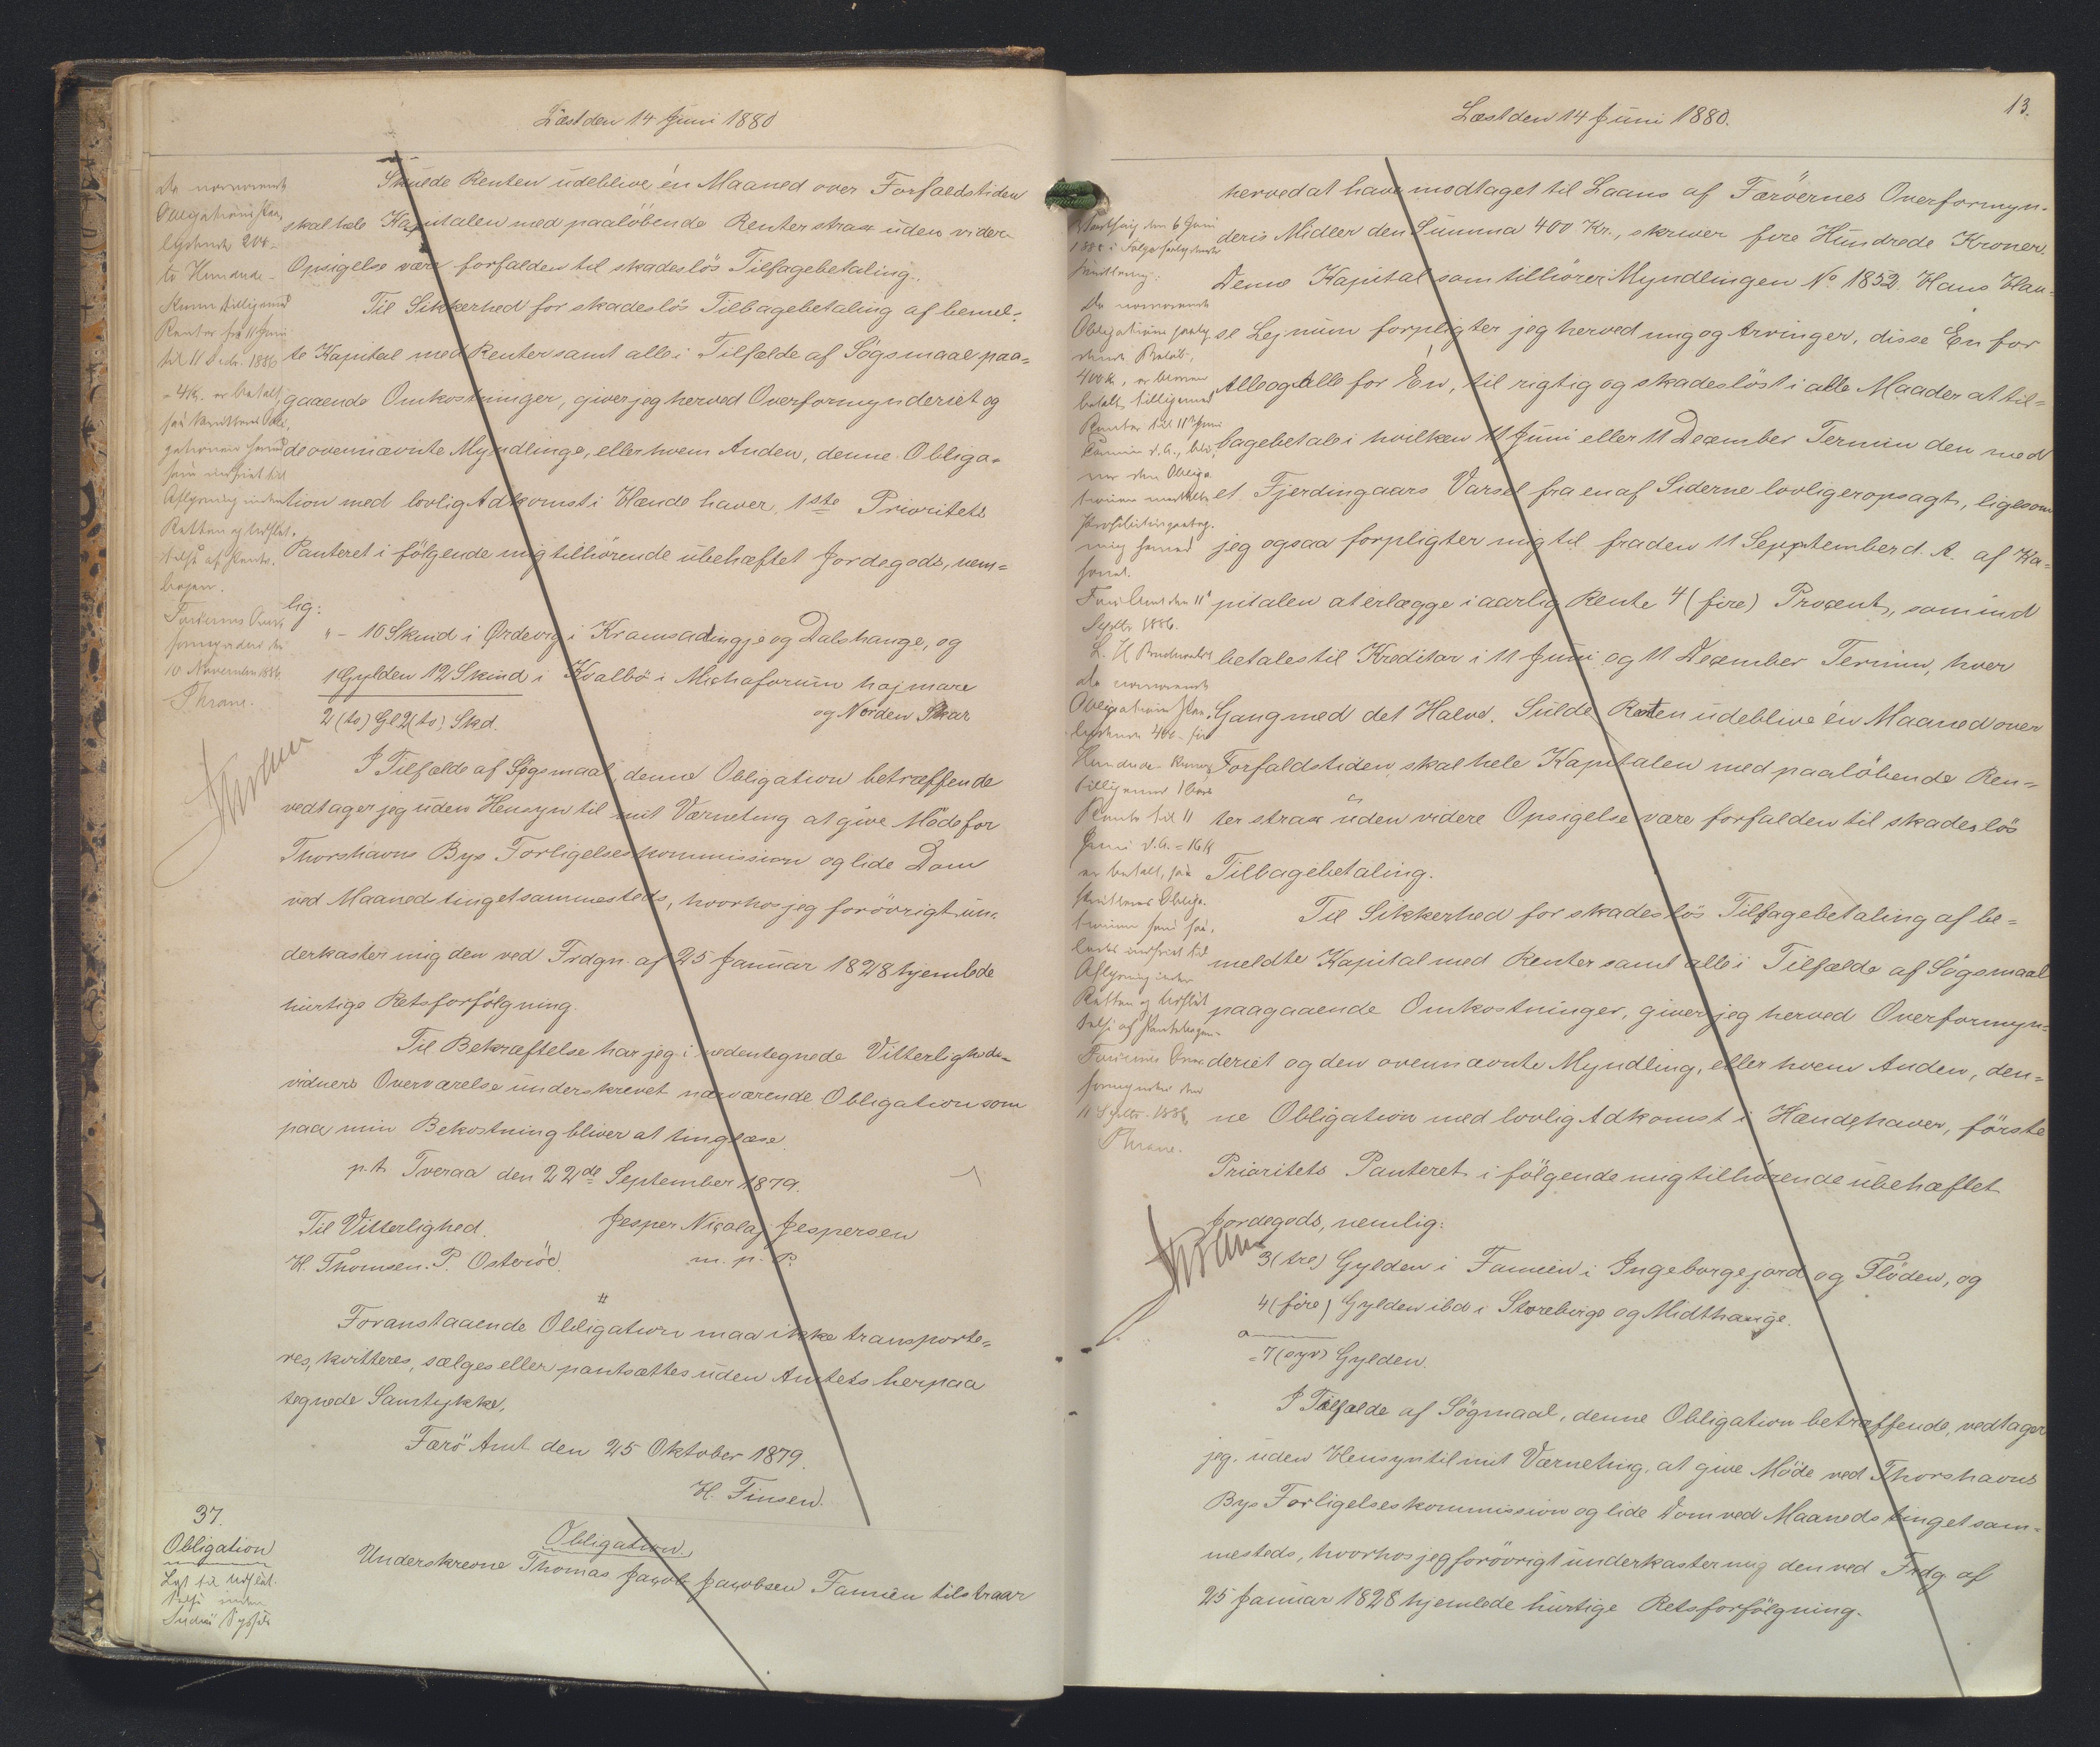 Læst den 14 Juni 1880
Skulde Renten udeblive én Maaned over Forfaldstiden
skal hele Kapitalen med paalöbende Renter strax uden videre
Opsigelse være forfalden til skadeslös Tilfagebetaling.
Til Sikkerhed for skadeslös Tilbagebetaling af bemel-
te Kapital med Renter samt alle i Tilfælde af Sögsmaal paa-
gaaende Omkostninger, giver jeg herved Overformynderiet og
de ovennævnte Myndlinge, eller hvem Anden, denne Obliga-
tion med lovlig Adkomst i Hænde haver, 1ste Prioritets
Panteret i fölgende mig tilhörende ubehæftet Jordegods, nem-
lig:
" - 10 Skind i Ørdevig i Kramsadingje og Dalshauge, og
1 Gylden 12 Skind i Kvalbö i Michaforum hajmare
og Norden Skar
2 (to) Gl 2 (to) Skd.
I Tilfælde af Søgsmaal, denne Obligation betræffende
vedtager jeg uden Hensyn til mit Værneting at give Möde for
Thorshavns Byes Forligelseskommission og lide Dom
ved Maanedstinget sammesteds, hvorhos jeg forövrigt un-
derkaster mig den ved Frdgn. af 25 Januar 1828 hjemlede
hurtige Retsforfölgning.
Til Bekræftelse har jeg i nedentegnede Vitterligheds-
vidners Overværelse underskrevet nærværende Obligation som
paa min Bekostning bliver at tinglæse.
p.t. Tveraa den 22de September 1879.
Til Vitterlighed. Jesper Nicolaj Jespersen
H. Thomsen. P. Osteröe. m. p. P.
Foranstaaende Obligation maa ikke transporte-
res, kvitteres, sælges eller pantsættes uden Amtets herpaa
tegnede Samtykke.
Færö Amt den 25 Oktober 1879.
H. Finsen.
Da nærværende
Obligations paa-
lydende 200 -
to Hundrede -
Kroner tilligemed
Renter fra 11 Juni
til 11 Decbr. 1886
- 4 Kr. er betalt,
saa kvitteres Obli-
gationen
Aflysning inden
Retten og Udslet-
telse af Pante-
bogen.
Færöernes Over-
formynderi den
10 November 1886
Thrane.
Thrane
37.
Obligation
Lyst til Udslet-
telse inden
Suderö Syssels
Obligation.
Underskrevne Thomas Jacob Jacobsen Famien tilstaar
13.
Læst den 14 Juni 1880.
herved at have modtaget til Laans af Færöernes Overformyn-
deris Midler den Summa 400 Kr., skriver fire Hundrede Kroner.
Denne Kapital som tilhörer Myndlingen No 1852 Hans Han-
se Lejnum forpligter jeg herved mig og Arvinger, disse En for
Alle og Alle for En, til rigtig og skadeslöst i alle Maader at til-
bagebetale i hvilken 11 Juni eller 11 December Termin den med
et Fjerdingaars Varsel fra en af Siderne lovligen opsagt, ligesom
jeg ogsaa forpligter mig til fra den 11 September d. A. af Ka-
pitalen at erlægge i aarlig Rente 4 (fire) Procent, som ind
betales til Kreditor i 11 Juni og 11 December Termin, hver
Gang med det Halve. Sulde Renten udeblive én Maaned over
Forfaldstiden skal hele Kapitalen med paalöbende Ren-
ter strax uden videre Opsigelse være forfalden til skadeslös
Tilbagebetaling.
Til Sikkerhed for skadeslös Tilfagebetaling af be-
meldte Kapital med Renter samt alle i Tilfælde af Sögsmaal
paagaaende Omkostninger, giver jeg herved Overformyn-
deriet og den ovennævnte Myndling, eller hvem Anden, den-
ne Obligation med lovlig Adkomst i Hændehaver, förste
Prioritets Panteret i fölgende mig tilhörende ubehæftet
Jordegods, nemlig:
3 (tre) Gylden i Famien i Ingeborgejord og Flöden, og
4 (fire) Gylden ibd i Storebirge og Midthauge.
= 7 (syv) Gylden.
I Tilfælde af Sögmaal, denne Obligation betræffende, vedtager
jeg, uden Hensyn til mit Værneting, at give Möde ved Thorshavns
Byes Forligelseskommission og lide Dom ved Maanedstinget sam-
mesteds, hvorhos jeg forövrigt underkaster mig den ved Frdg af
25 Januar 1828 hjemlede hurtige Retsforfölgning.
den 6 Juni
Da nærværende
Obligations paaly-
dende Belöb,
400 Kr, er
betalt tilligemed
Renter til 11 Juni
Termin d. A.,
11
Septbr 1886.
da nærværende
Obligation paa-
lydende 400 - fire
Hundrede - Kroner
tilligemed
Rente til 11
Juni d. A. = 16 Kr
er betalt, saa
kvitteres Obliga-
tionen
Aflysning inden
Retten og Udslet-
telse af Pantebogen.
Færöernes Over-
formynderi den
11 Septbr. 1886
Thrane.
Thrane